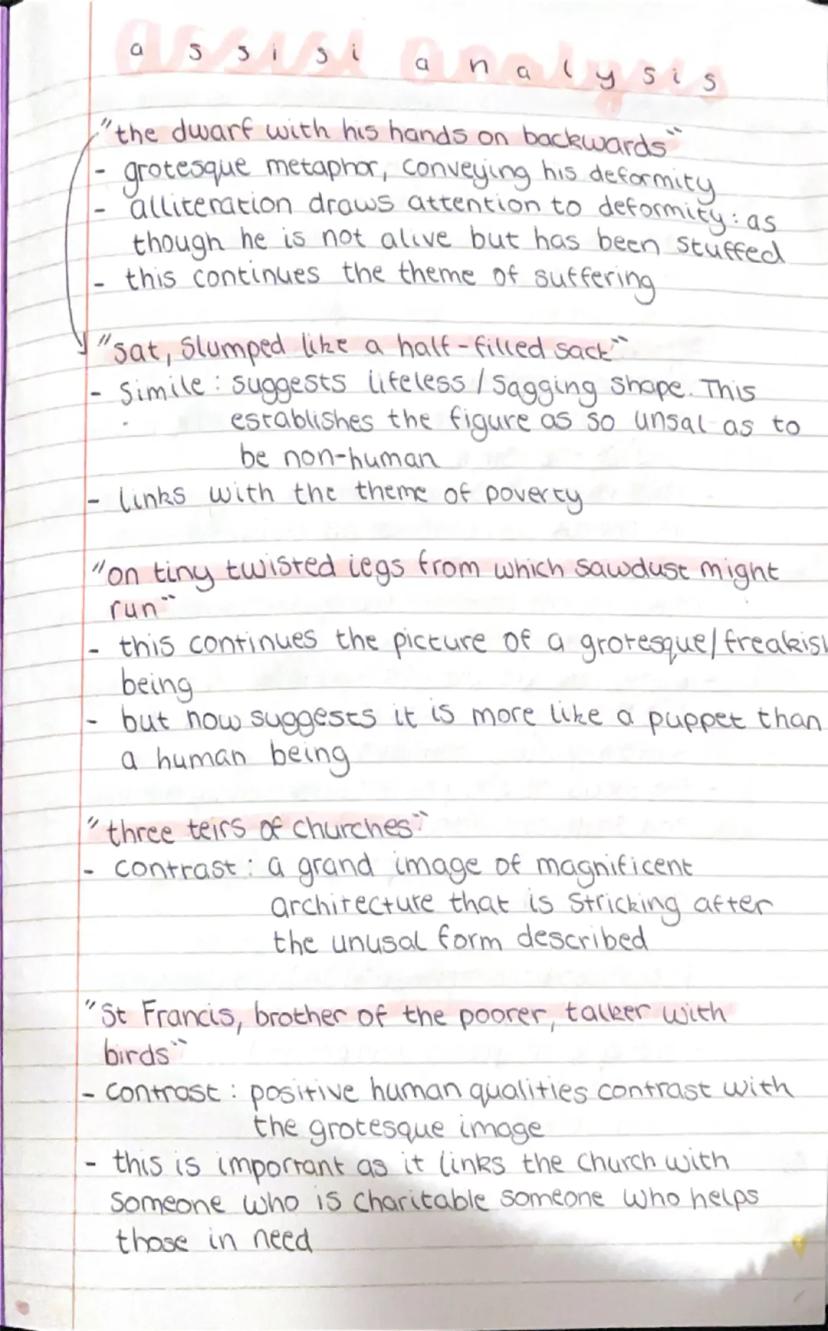 assisi analysis
"the dwarf with his hands on backwards"
- grotesque metaphor, conveying his deformity
- alliteration draws attention to deformity: as
though he is not alive but has been stuffed
- this continues the theme of suffering
"sat, slumped like a half-filled sack"
- Simile: suggests lifeless/sagging shape. This
establishes the figure as so unsal as to
be non-human
- links with the theme of poverty
"on tiny twisted legs from which sawdust might
run"
- this continues the picture of a grotesque/freakish
being
- but now suggests it is more like a puppet than
a human being
"three teirs of churches"
- contrast: a grand image of magnificent
architecture that is stricking after
the unusal form described
"St Francis, brother of the poorer, talker with
birds"
- contrast: positive human qualities contrast with
the grotesque image
- this is important as it links the church with
someone who is charitable someone who helps
those in need